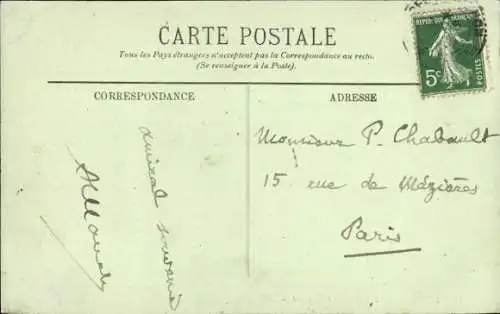 CARTE POSTALE
Tous les Pays étrangers n'acceptent pas la Correspondance au recto.
(Se renseigner à la Poste).
CORRESPONDANCE
ADRESSE
REPUBLIQUE FRANÇAISE
5c
POSTES
amical souvenir
Monsieur P. Chabault
15 rue de Mézières
Paris